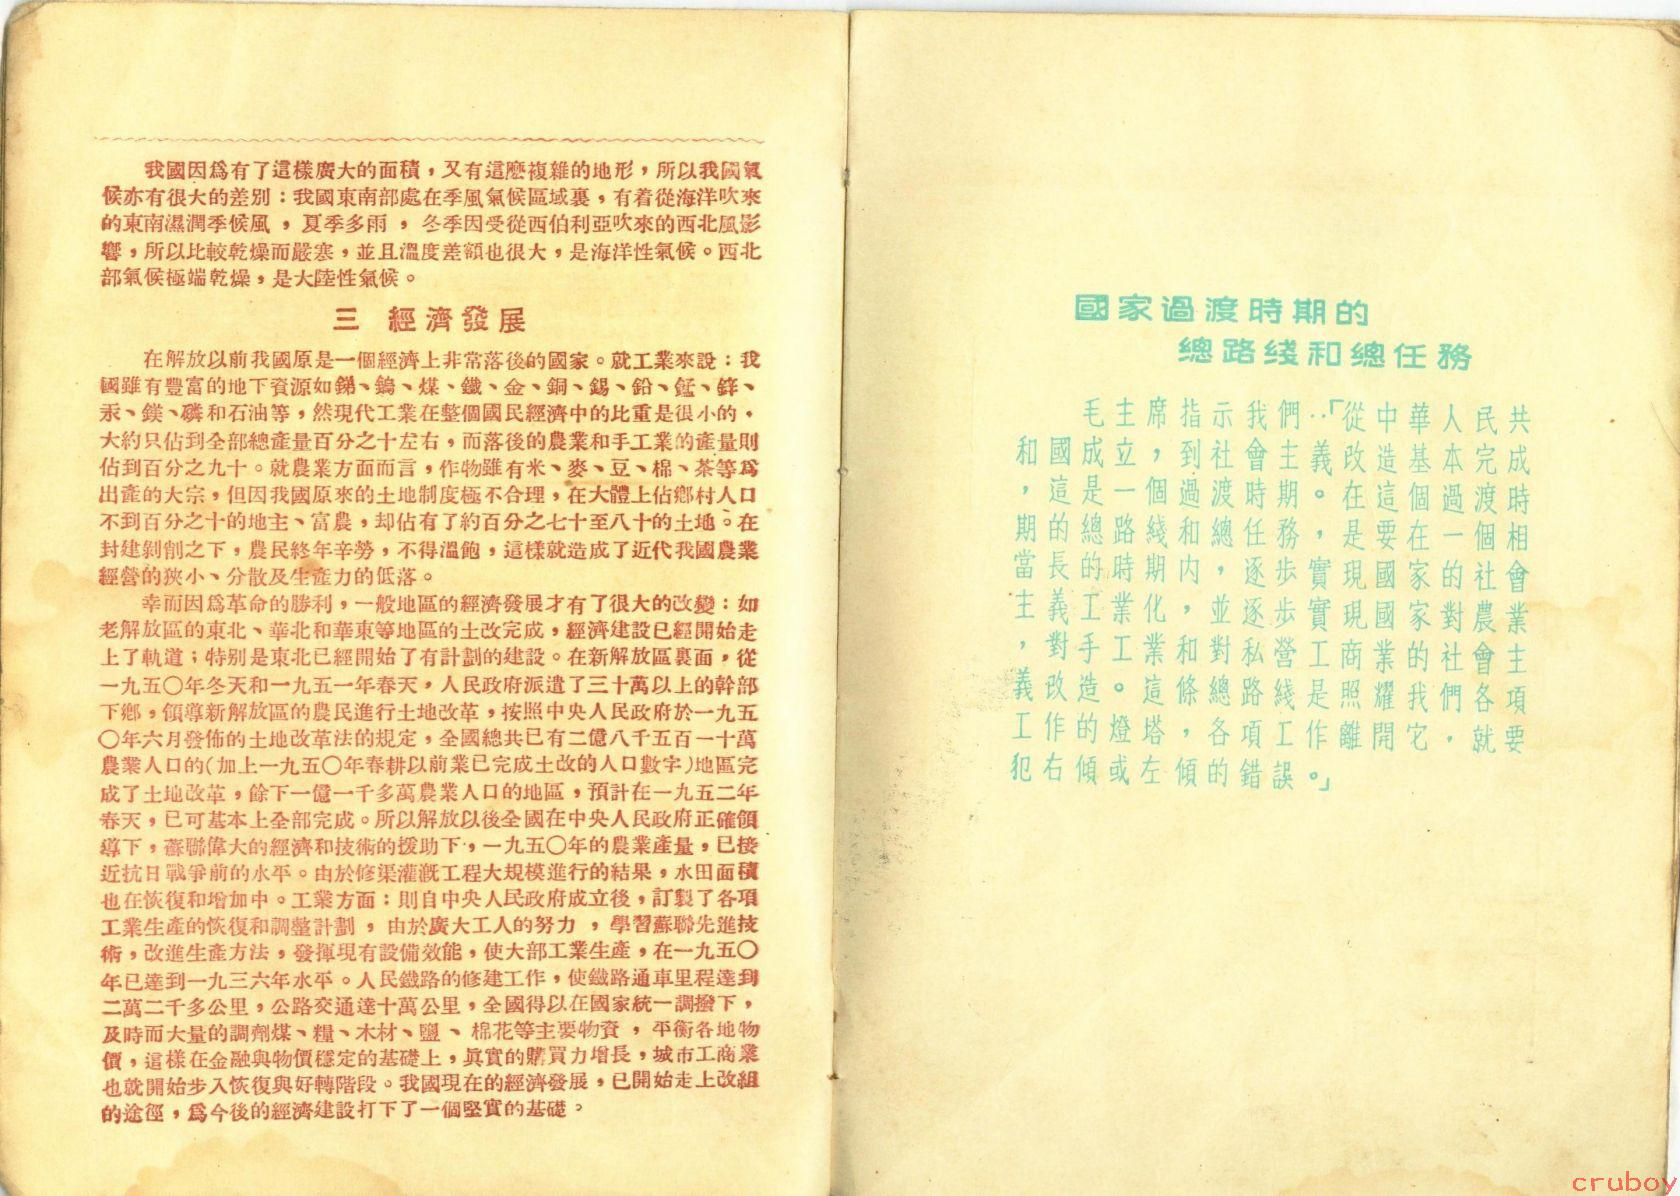 我國因爲有了這樣廣大的面積，又有這麽複雜的地形，所以我國氣
候亦有很大的差别：我國東南部處在季風氣候區域裏，有着從海洋吹來
的東南濕潤季候風，夏季多雨，冬季因受從西伯利亞吹來的西北風影
響，所以比較乾燥而嚴寒，並且溫度差額也很大，是海洋性氣候。西北
部氣候極端乾燥，是大陸性氣候。
三　經濟發展
在解放以前我國原是一個經濟上非常落後的國家。就工業來說：我
國雖有豐富的地下資源如銻、鎢、煤、鐵、金、銅、錫、鉛、錳、鋅、
汞、鎂、磷和石油等，然現代工業在整個國民經濟中的比重是很小的，
大約只佔到全部總產量百分之十左右，而落後的農業和手工業的產量則
佔到百分之九十。就農業方面而言，作物雖有米、麥、豆、棉、茶等爲
出產的大宗，但因我國原來的土地制度極不合理，在大體上佔鄉村人口
不到百分之十的地主、富農，却佔有了約百分之七十至八十的土地。在
封建剝削之下，農民終年辛勞，不得溫飽，這樣就造成了近代我國農業
經營的狹小、分散及生產力的低落。
幸而因爲革命的勝利，一般地區的經濟發展才有了很大的改變：如
老解放區的東北、華北和華東等地區的土改完成，經濟建設已經開始走
上了軌道；特别是東北已經開始了有計劃的建設。在新解放區裏面，從
一九五〇年冬天和一九五一年春天，人民政府派遣了三十萬以上的幹部
下鄉，領導新解放區的農民進行土地改革，按照中央人民政府於一九五
〇年六月發佈的土地改革法的規定，全國總共已有二億八千五百一十萬
農業人口的（加上一九五〇年春耕以前業已完成土改的人口數字）地區完
成了土地改革，餘下一億一千多萬農業人口的地區，預計在一九五二年
春天，已可基本上全部完成。所以解放以後全國在中央人民政府正確領
導下，蘇聯偉大的經濟和技術的援助下，一九五〇年的農業產量，已接
近抗日戰爭前的水平。由於修渠灌漑工程大規模進行的結果，水田面積
也在恢復和增加中。工業方面：則自中央人民政府成立後，訂製了各項
工業生產的恢復和調整計劃，由於廣大工人的努力，學習蘇聯先進技
術，改進生產方法，發揮現有設備效能，使大部工業生產，在一九五〇
年已達到一九三六年水平。人民鐵路的修建工作，使鐵路通車里程達到
二萬二千多公里，公路交通達十萬公里，全國得以在國家統一調撥下，
及時而大量的調劑煤、糧、木材、鹽、棉花等主要物資，平衡各地物
價，這樣在金融與物價穩定的基礎上，眞實的購買力增長，城市工商業
也就開始步入恢復與好轉階段。我國現在的經濟發展，已開始走上改組
的途徑，爲今後的經濟建設打下了一個堅實的基礎。
國家過渡時期的
總路綫和總任務
毛主席指示我們：「從中華人民共
和國成立，到社會主義改造基本完成
，這是一個過渡時期。在這個過渡時
期的總路綫和總任務，是要在一個相
當長的時期內，逐步實現國家的社會
主義工業化，並逐步實現國家對農業
，對手工業和對私營工商業的社會主
義改造。這條總路綫是照耀我們各項
工作的燈塔，各項工作離開它，就要
犯右傾或左傾的錯誤。」
cruboy